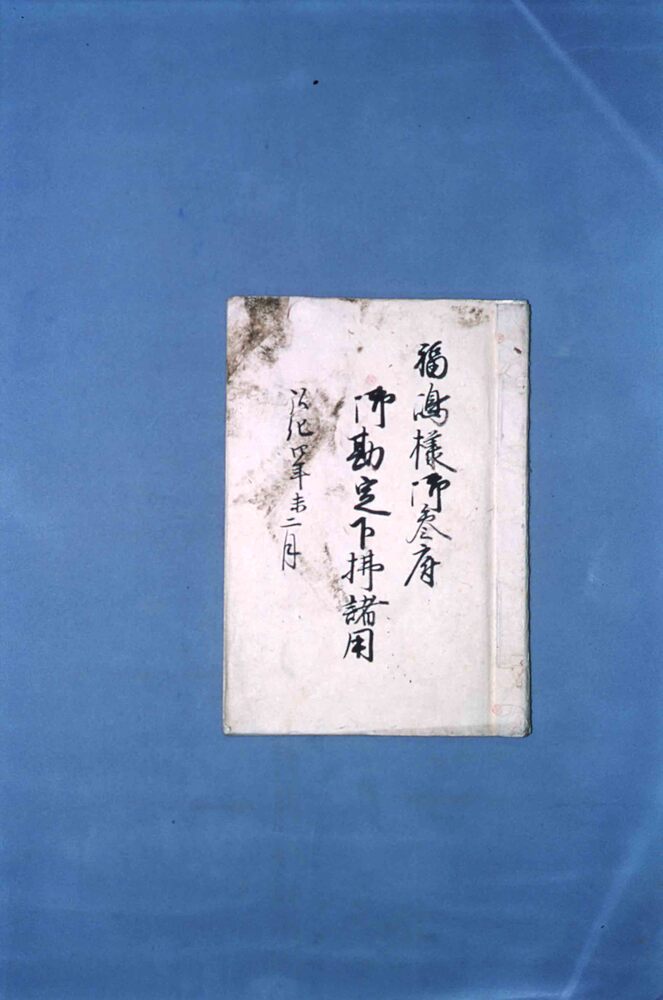 福嶋様御参府
御勘定下拂諸用
弘化四年未二月